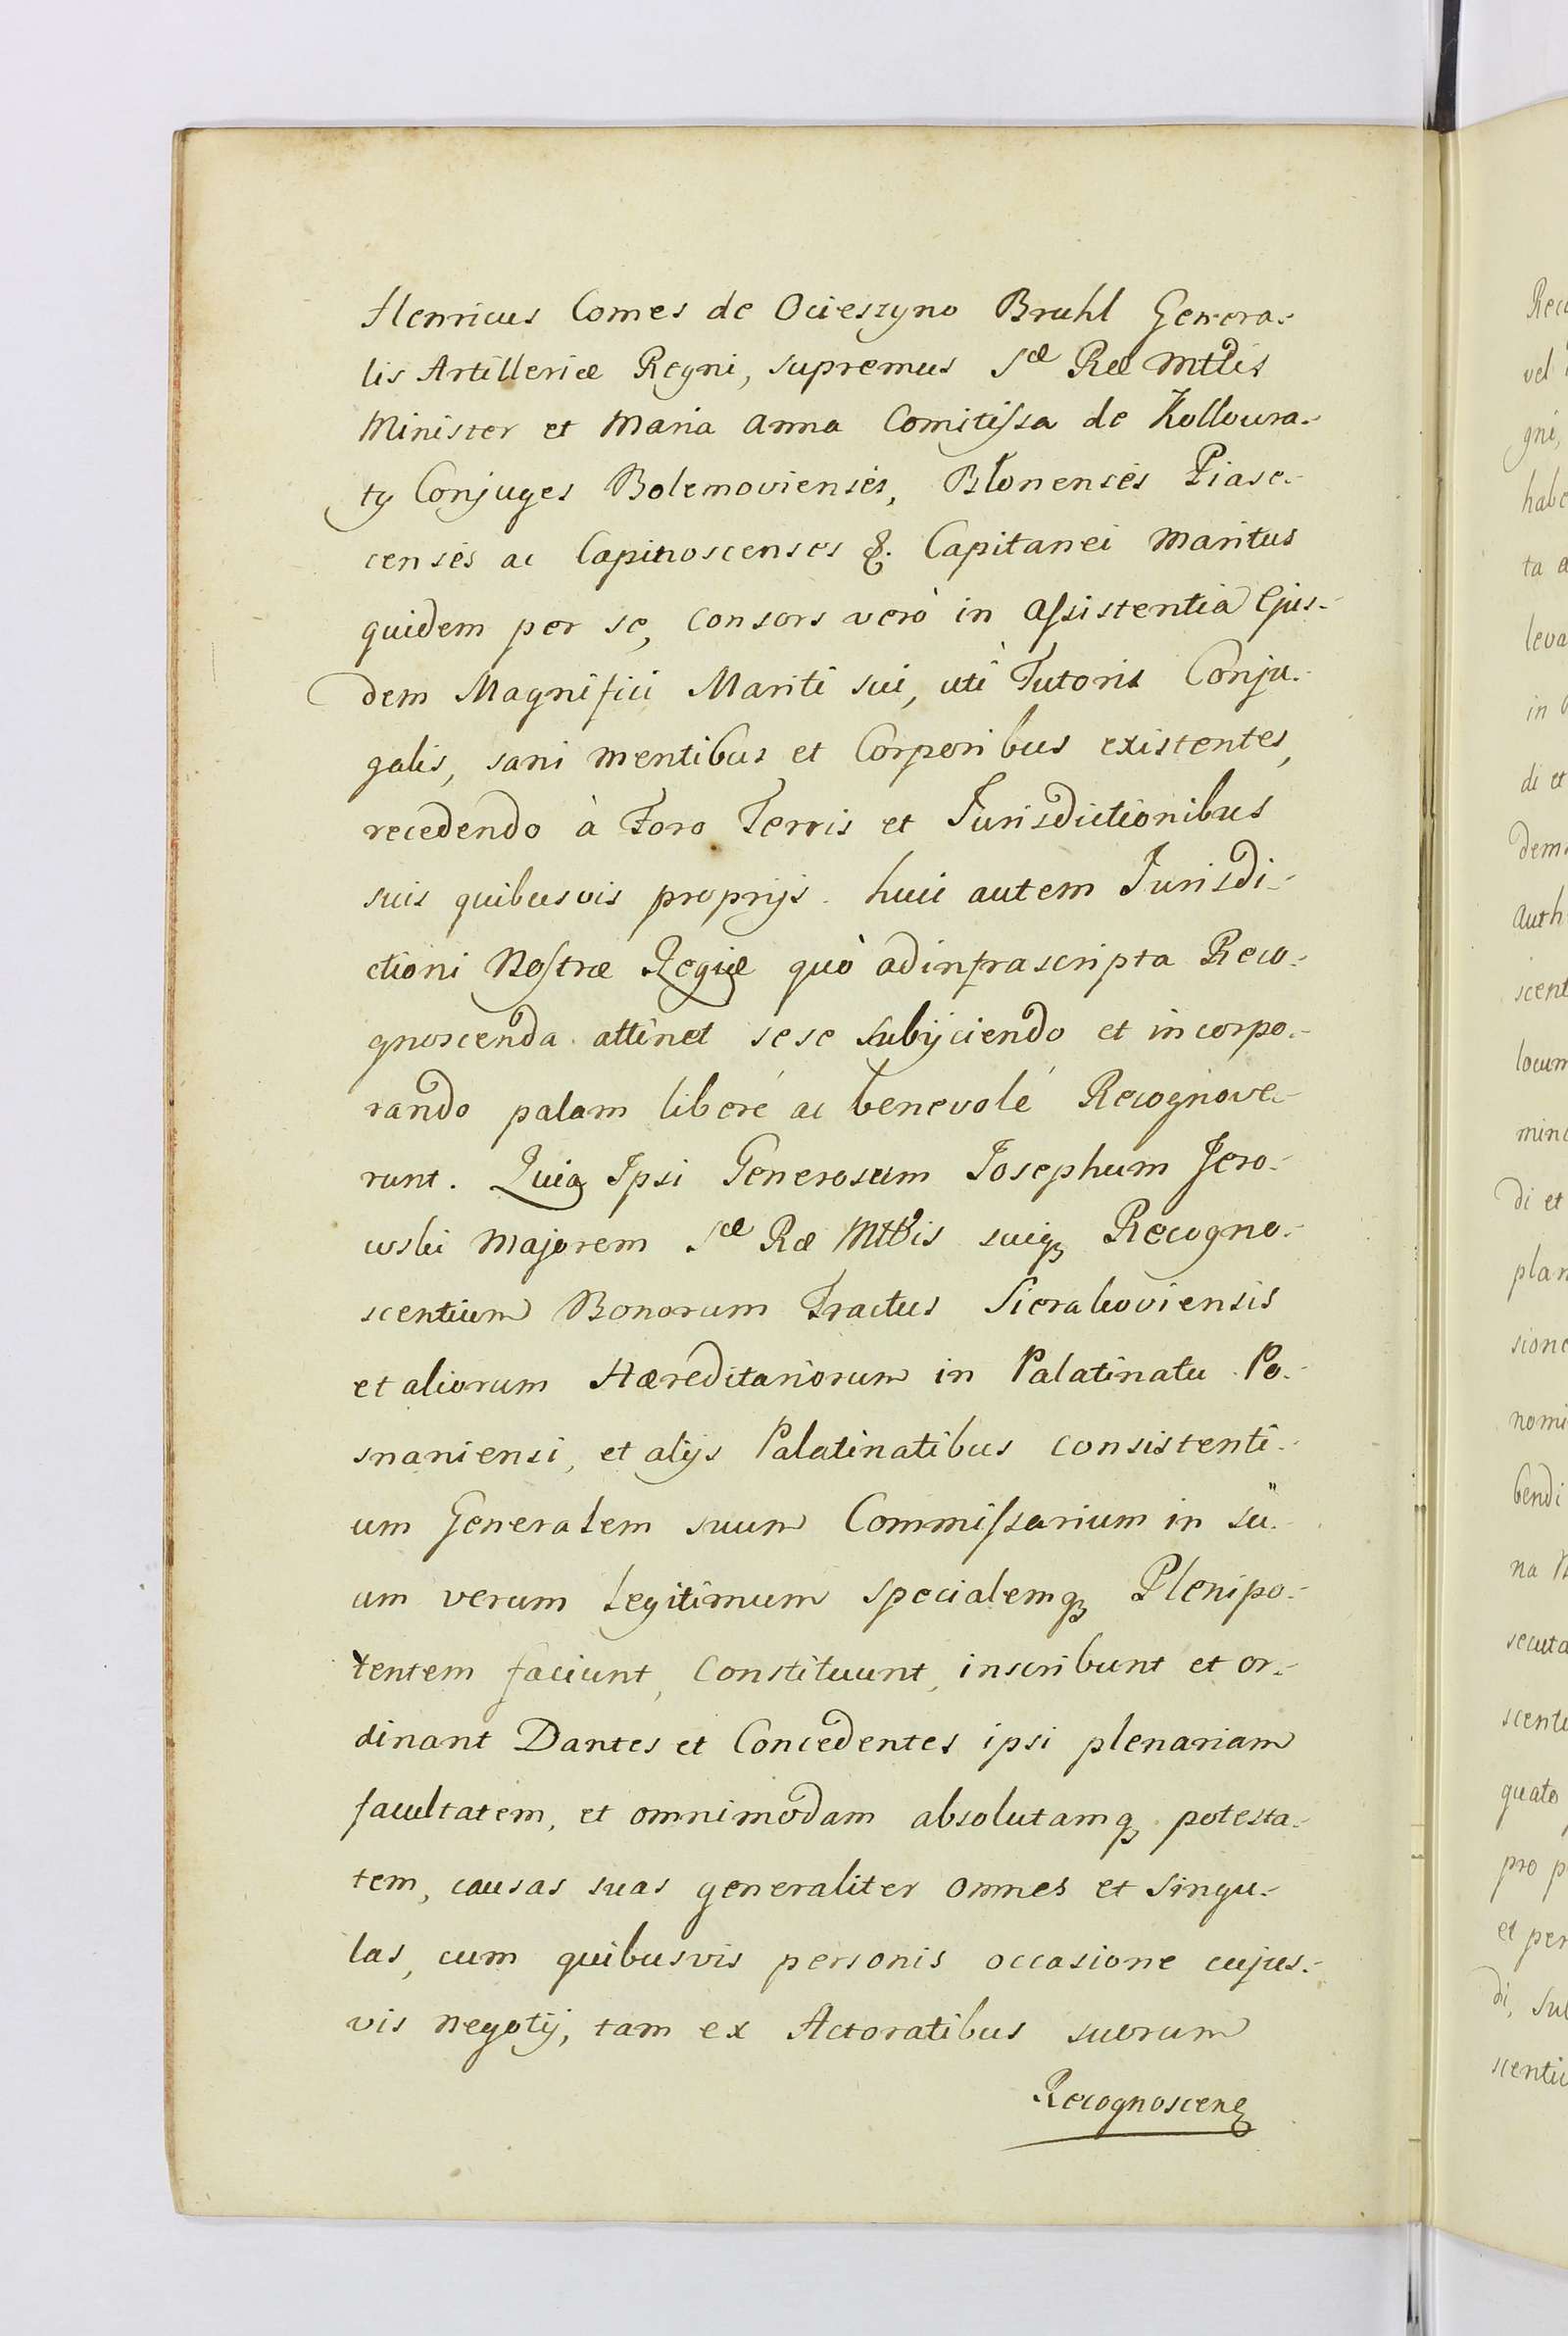 Henricus Comes de Ocieszyno Bruhl Genera-
lis Artilleriæ Regni, supremus Sæ Ræ Mttis
Minister et Maria Anna Comitissa de Kolloura-
ty Conjuges Bolemovienses, Blonenses Piase-
censes ac Capinoscenses &. Capitanei Maritus
quidem per se, consors verò in Assistentia Ejus-
dem Magnifici Mariti sui, uti Tutoris Conju-
galis, sani mentibus et Corporibus existentes,
recedendo à Foro Terris et Jurisdictionibus
suis quibusvis proprijs. huic autem Jurisdi-
ctioni Nostræ Regiæ quò ad infrascripta Reco-
gnoscenda attinet sese subijciendo et incorpo-
rando palam liberé ac benevolé Recognove-
runt. Quia Ipsi Generosum Josephum Jero-
wski Majorem Sæ Ræ Mttis suiq Recogno-
scentium Bonorum Tractus Sierakoviensis
et aliorum Hæreditariorum in Palatinatu Po-
snaniensi, et alijs Palatinatibus consistenti-
um Generalem suum Commissarium in su-
um verum Legitimum specialemq Plenipo-
tentem faciunt, Constituunt, inscribunt et or-
dinant Dantes et Concedentes ipsi plenariam
facultatem, et omnimodam absolutamq potesta-
tem, causas suas generaliter omnes et singu-
las, cum quibusvis personis occasione cujus-
vis negotij, tam ex Actoratibus suorum
Recognoscen
vel
gni,
habe
leva
in
di et
dem
auth
scent
locum
di et
plan
sione
nomi
bendi
na
secuta
quato
pro p
et per
di,